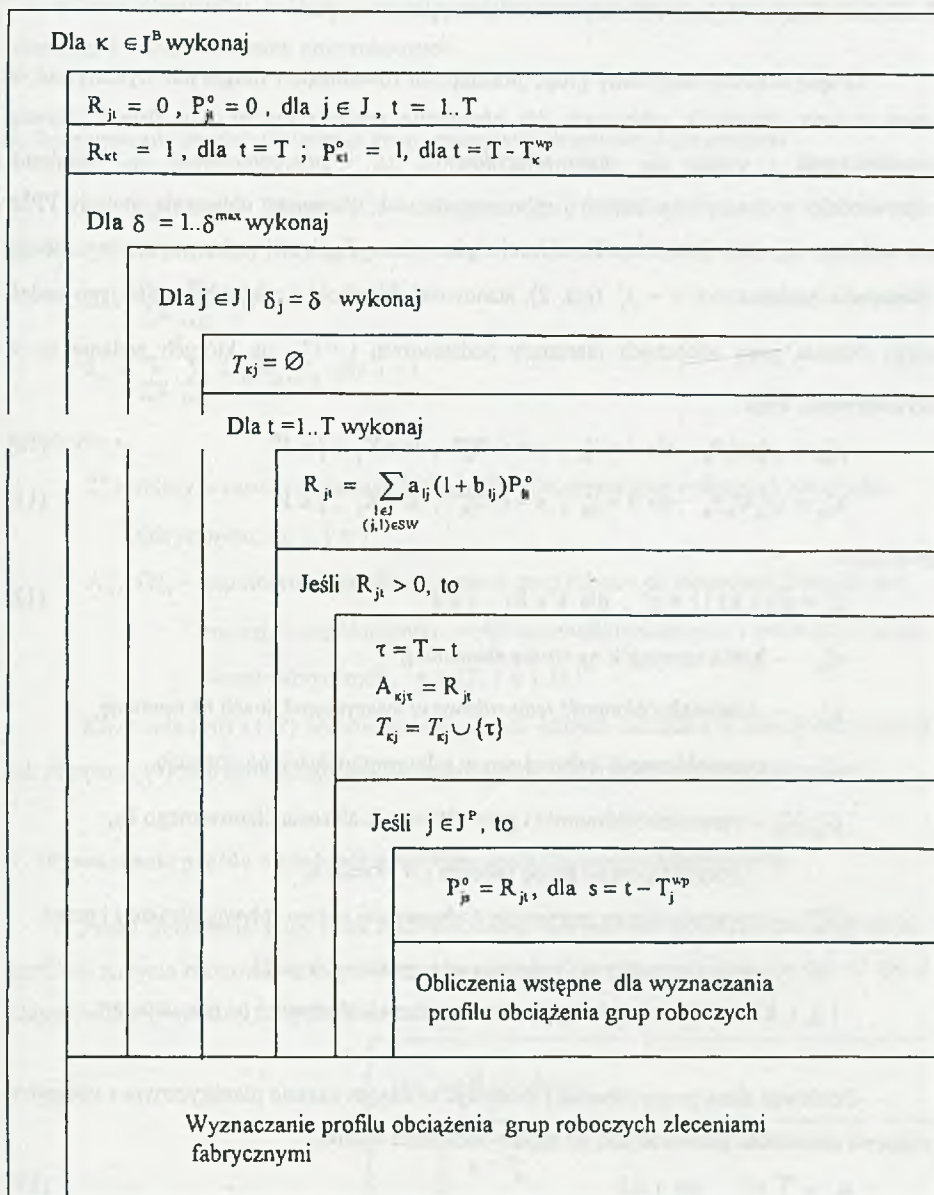 Dla κ ∈ J^B wykonaj
R_jt = 0 , P°_jt = 0 , dla j ∈ J , t = 1..T
R_κt = 1 , dla t = T ; P°_κt = 1, dla t = T - T_κ^wp
Dla δ = 1..δ^max wykonaj
Dla j ∈ J | δ_j = δ wykonaj
T_κj = ∅
Dla t = 1..T wykonaj
R_jt = ∑ a_lj (1 + b_lj) P°_lt
l∈J
(j,l)∈SW
Jeśli R_jt > 0, to
τ = T − t
A_κjτ = R_jt
T_κj = T_κj ∪ {τ}
Jeśli j ∈ J^P, to
P°_js = R_jt, dla s = t − T_j^wp
Obliczenia wstępne dla wyznaczania
profilu obciążenia grup roboczych
Wyznaczanie profilu obciążenia grup roboczych zleceniami
fabrycznymi